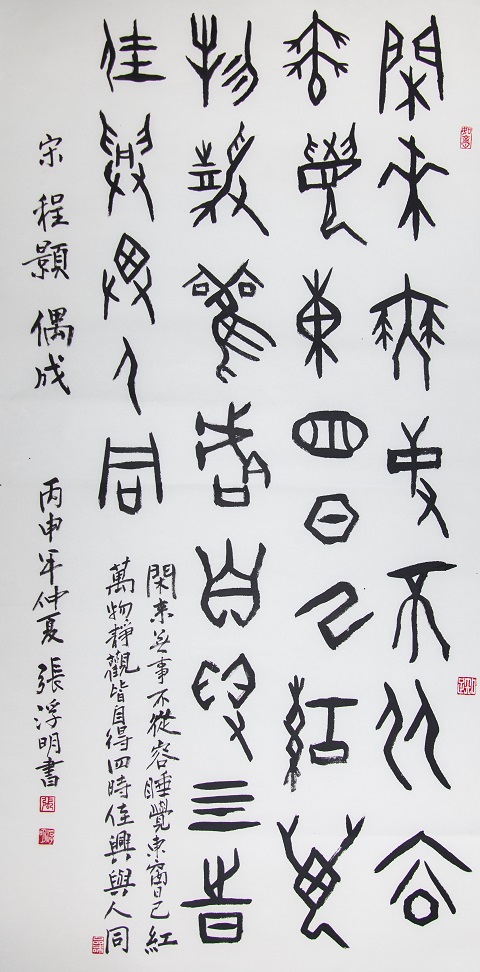 閑來無事不從容
睡覺東窗日已紅萬
物靜觀皆自得四時
佳興與人同
閑來無事不從容睡覺東窗日已紅
萬物靜觀皆自得四時佳興與人同
宋 程顥 偶成 丙申年仲夏 張浮明書